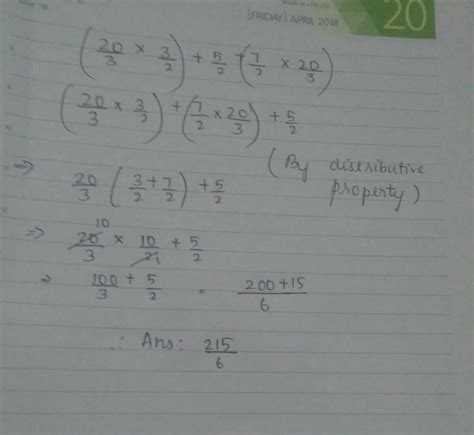 (FRIDAY) APRIL 2018
20
(20/3 × 3/2) + 5/2 + (7/2 × 20/3)
(20/3 × 3/2) + (7/2 × 20/3) + 5/2
(By distributive property)
⇒ 20/3 (3/2 + 7/2) + 5/2
⇒ 20/3 10 × 10/2 1 + 5/2
⇒ 100/3 + 5/2 = 200+15/6
∴ Ans: 215/6